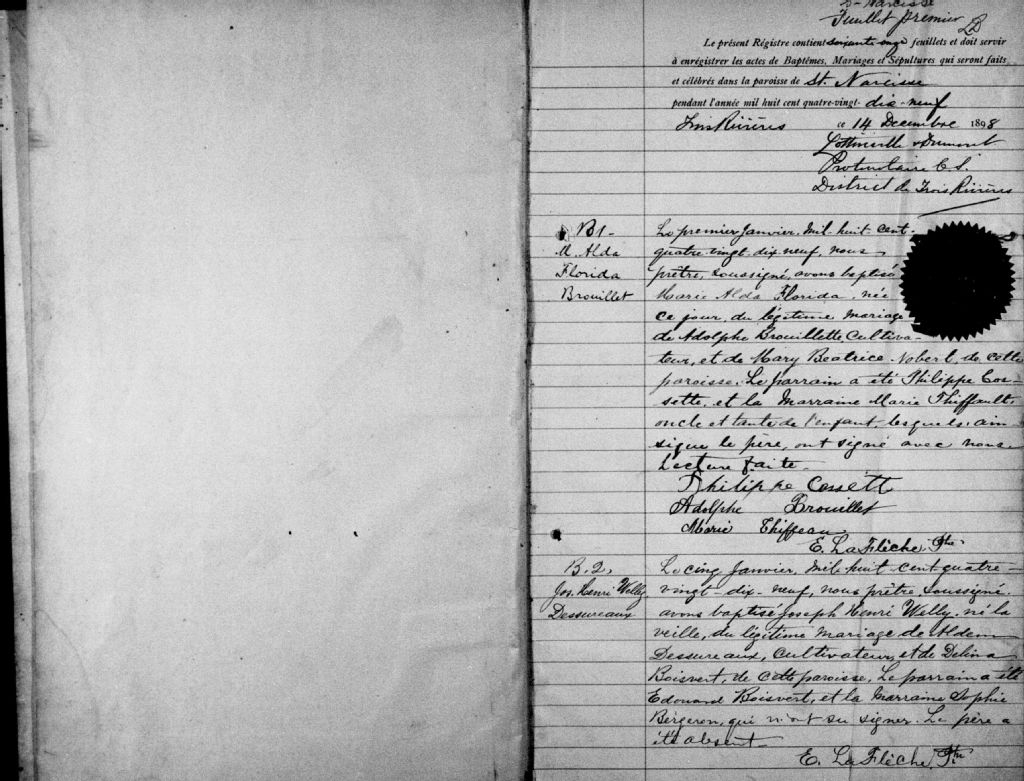 St. Narcisse
Feuillet premier LD
Le présent Régistre contient soixante onze feuillets et doit servir
à enrégistrer les actes de Baptêmes, Mariages et Sépultures qui seront faits
et célébrés dans la paroisse de St. Narcisse
pendant l'année mil huit cent quatre-vingt- dix-neuf
Trois Rivières ce 14 Decembre 1898
Lottinville & Dumont
Protonotaire C. S.
District de Trois Rivières
B1-
M. Alda
Florida
Brouillet
Le premier Janvier, mil-huit-cent-
quatre-vingt-dix-neuf, nous
prêtre, soussigné, avons baptisé
Marie Alda Florida, née
ce jour, du légitime mariage
de Adolphe Brouillette Cultiva-
teur, et de Mary Beatrice Nobert, de cette
paroisse. Le parrain a été Philippe Cos-
sette, et la Marraine Marie Thiffault,
oncle et tante de l'enfant, lesquels, ain
si que le père, ont signé avec nous
Lecture faite.
Philippe Cossett
Adolphe Brouillet
Marie Thiffeau
E. LaFlèche, Ptre
B. 2.
Jos. Henri Welly
Dessureaux
Le cinq Janvier, mil-huit-cent quatre-
vingt-dix-neuf, nous prêtre, soussigné,
avons baptisé Joseph Henri Welly, né la
veille, du légitime mariage de Aldem
Dessureaux, Cultivateur, et de Delina
Boisvert, de cette paroisse. Le parrain a été
Edouard Boisvert, et la Marraine Sophie
Bergeron, qui n'ont su signer. Le père a
été absent.
E. LaFlèche, Ptre